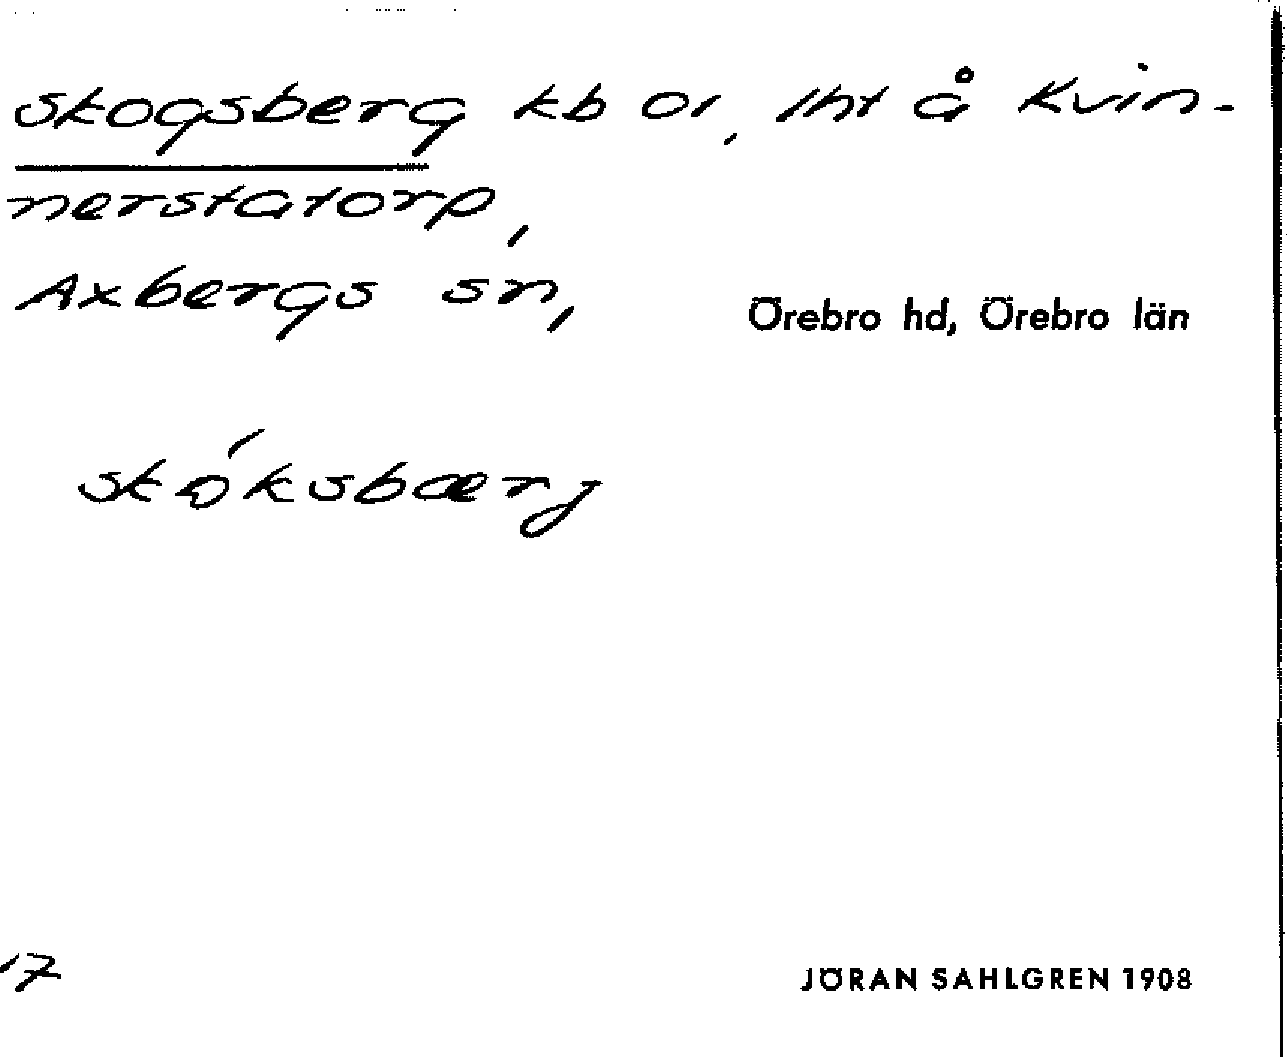 Skogsberg kb or, lht å Kvin-
nerstatorp,
Axbergs sn, Örebro hd, Örebro län
skóksbærj
17
JÖRAN SAHLGREN 1908